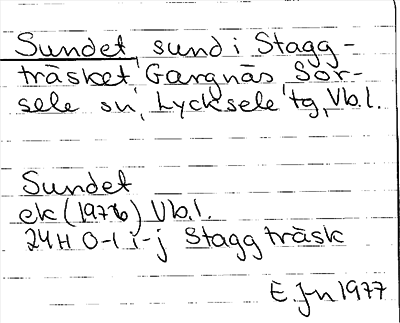 Sundet, sund i Stagg-
träsket, Gargnäs Sor-
sele sn, Lycksele tg, Vb.l.
Sundet
ek (1976) Vb.l.
24H 0-1 i-j Staggträsk
E. Jn 1977